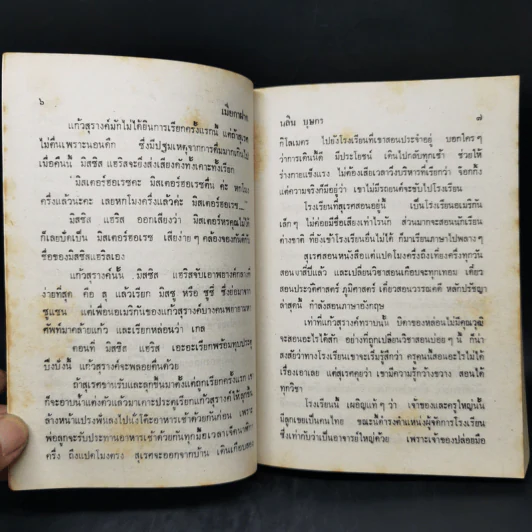 ๖
เมียกาฝาก
แก้วสุรางค์มักไม่ได้ยินการเรียกครั้งแรกนี้ แต่ถ้าสุเรศ
ไม่ตื่นเพราะนอนดึก ซึ่งมีปฐมเหตุจากการดื่มมากเกินไป
เมื่อคืนนี้ มิสซิส แฮริสจะยิ่งส่งเสียงดังทั้งเคาะทั้งเรียก
"มิสเตอร์ฮอเรซคะ มิสเตอร์ฮอเรซตื่น ค่ะ หกโมง
ครึ่งแล้วนะคะ เลยหกโมงครึ่งแล้วค่ะ มิสเตอร์ฮอเรซ...
มิสซิส แฮริส ออกเสียงว่า มิสเตอร์
ก็เลยบิดเป็น มิสเตอร์ฮอเรซ เสียงง่าย ๆ คล้องจองกันดีกับ
ชื่อของมิสซิสแฮริสเอง
แก้วสุรางค์นั้น มิสซิส แฮริสจับเอาพยางค์กลาง
ง่ายที่สุด คือ สุ แล้วเรียก มิสซู หรือ ซูซี่ ซึ่งย่อมาจาก
ซูแซน แต่เพื่อนอเมริกันของแก้วสุรางค์บางคนพยายาม
ศัพท์มาคล้ายแก้ว และเรียกหล่อนว่า เกล
ตอนที่ มิสซิส แฮริส เอะอะเรียกพร้อมทุบประตู
ปึงปังนี้ แก้วสุรางค์จะพลอยตื่นด้วย
ถ้าสุเรศขานรับและลุกขึ้นมาตั้งแต่ถูกเรียกครั้งแรก เขา
ก็จะอาบน้ำแต่งตัวแล้วมาเคาะประตูเรียกแก้วสุรางค์ให้ลุกขึ้น
ล้างหน้าแปรงฟันลงไปนั่งโต๊ะอาหารเช้าด้วยกันก่อน เพราะ
พ่อลูกจะรับประทานอาหารเช้าด้วยกันทุกมื้อเวลาเจ็ดนาฬิกา
ครึ่ง ถึงแปดโมงตรง สุเรศจะออกจากบ้าน เดินเกือบสอง
นลิน บุษกร
๗
กิโลเมตร ไปยังโรงเรียนที่เขาสอนประจำอยู่ บอกใคร ๆ
ว่าการเดินนี้ดี มีประโยชน์ เดินไปกลับทุกเช้า ช่วยให้
ร่างกายแข็งแรง ไม่ต้องเสียเวลาวิ่งบริหารที่เรียกกันว่า จ๊อกกิ้ง
แต่ความจริงก็มีอยู่ว่า เขาไม่มีรถยนต์จะขับไปโรงเรียน
โรงเรียนที่สุเรศสอนอยู่นี้ เป็นโรงเรียนอเมริกัน
เล็ก ๆ ไม่ค่อยมีชื่อเสียงเท่าไรนัก ส่วนมากจะสอนนักเรียน
ต่างชาติ ที่ยังเข้าโรงเรียนอื่นไม่ได้ ก็มาเรียนภาษาไปพลางๆ
สุเรศสอนหนังสือแต่แปดโมงครึ่งถึงเที่ยงครึ่งทุกวัน
สอนมาสี่ปีแล้ว และเปลี่ยนวิชาสอนเกือบจะทุกเทอม เดี๋ยว
สอนประวัติศาสตร์ ภูมิศาสตร์ เดี๋ยวสอนวรรณคดี หลักปรัชญา
ล่าสุดนี้ กำลังสอนภาษาอังกฤษ
เท่าที่แก้วสุรางค์ทราบนั้น บิดาของหล่อนไม่มีคุณวุฒิ
จะสอนอะไรได้สัก อย่างที่ถูกเปลี่ยนวิชาสอนบ่อย ๆ นี้ ก็น่า
สงสัยว่าทางโรงเรียนชาจะเริ่มรู้สึกว่า ครูคนนี้สอนอะไรไม่ได้
เรื่องเอาเลย แต่สุเรศคุยว่า เขามีความรู้กว้างขวาง สอนได้
ทุกวิชา
โรงเรียนนี้ เผอิญแท้ ๆ ว่า เจ้าของและครูใหญ่นั้น
มีลูกเขยเป็นคนไทย ขณะดำรงตำแหน่งผู้จัดการโรงเรียน
ซึ่งเท่ากับว่าเป็นอาจารย์ใหญ่ด้วย เพราะเจ้าของปล่อยมือ